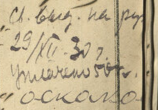 св. выд. на рук
29/XII-30 г.
уплачено 50 к.
"оскано